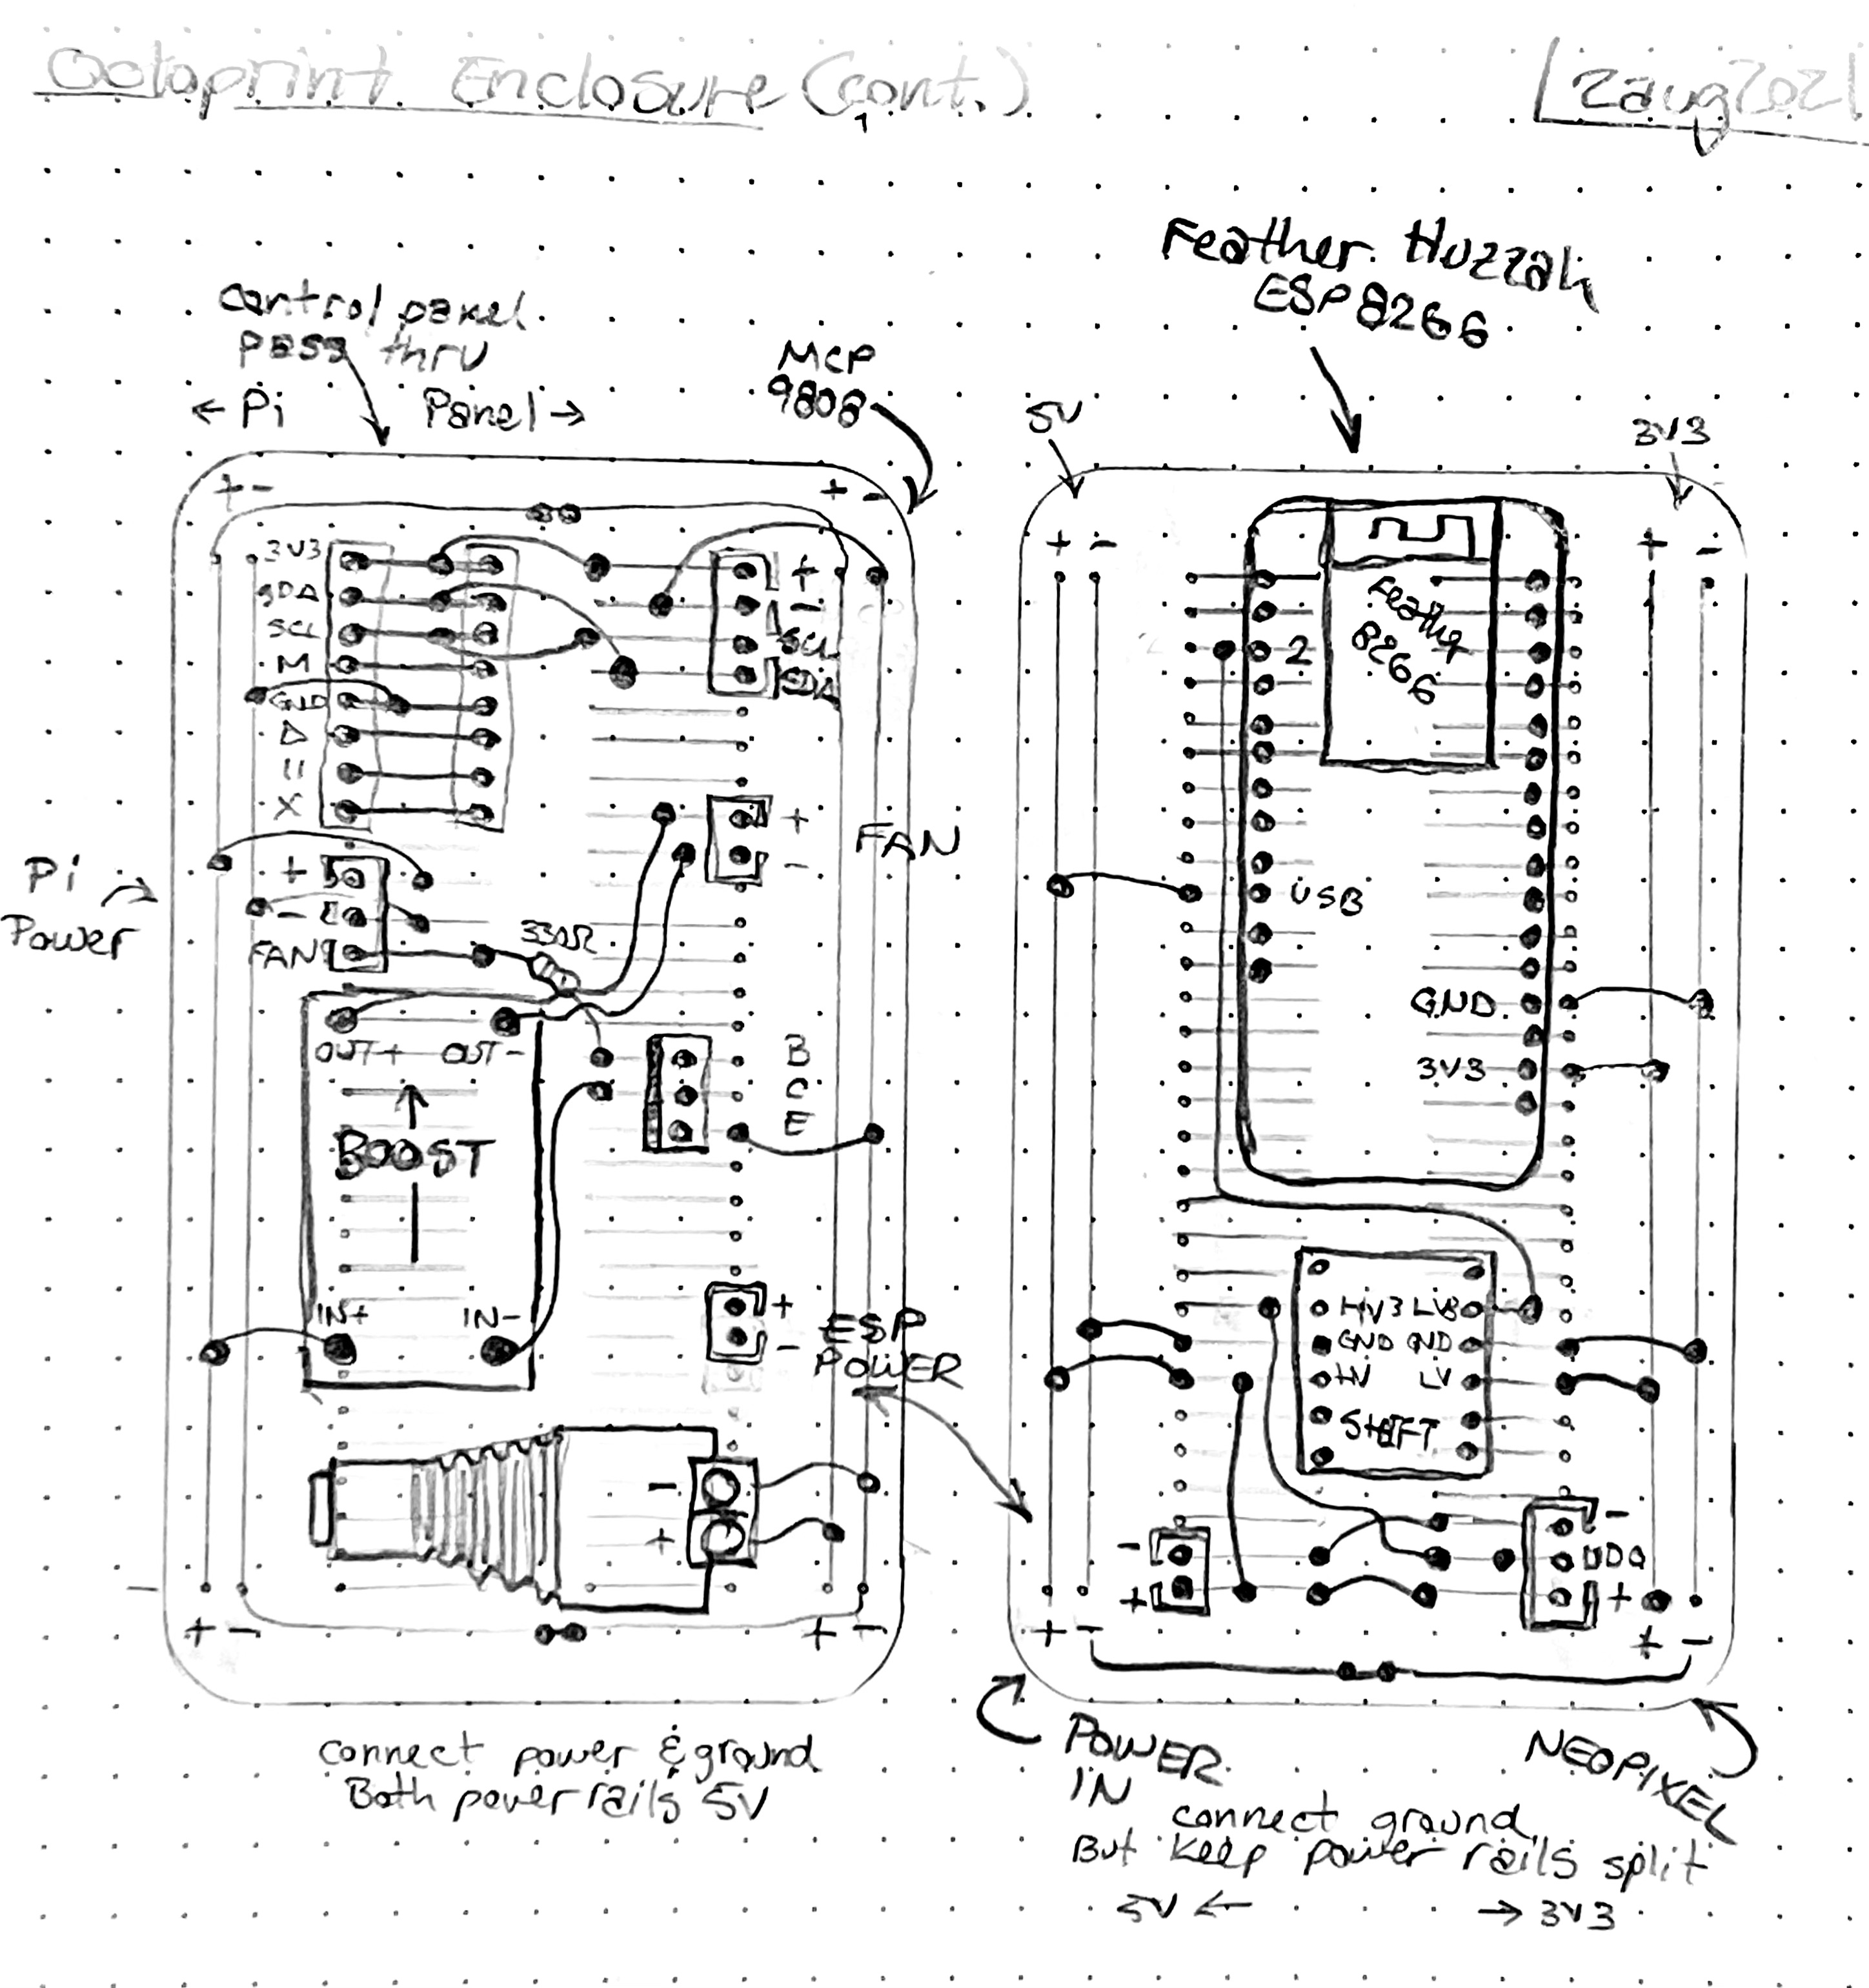 Octoprint Enclosure (cont.)
12aug2021
control panel
pass thru
← Pi Panel →
MCP
9808
+ -
+ -
3V3
SDA
SCL
M
GND
Δ
X
+
-
SCL
SDA
+
-
FAN
Pi
Power
+
-
FAN
330Ω
OUT+ OUT-
BOOST
IN+ IN-
B
C
E
+
-
ESP
POWER
-
+
+ -
+ -
connect power & ground
Both power rails 5V
Feather Huzzah
ESP8266
5V
3V3
+ -
+ -
Feather
8266
2
USB
GND
3V3
HV3 LV3
GND GND
HV LV
SHIFT
-
+
-
+
+ -
+ -
POWER
IN
NEOPIXEL
connect ground
But keep power rails split
5V ← → 3V3